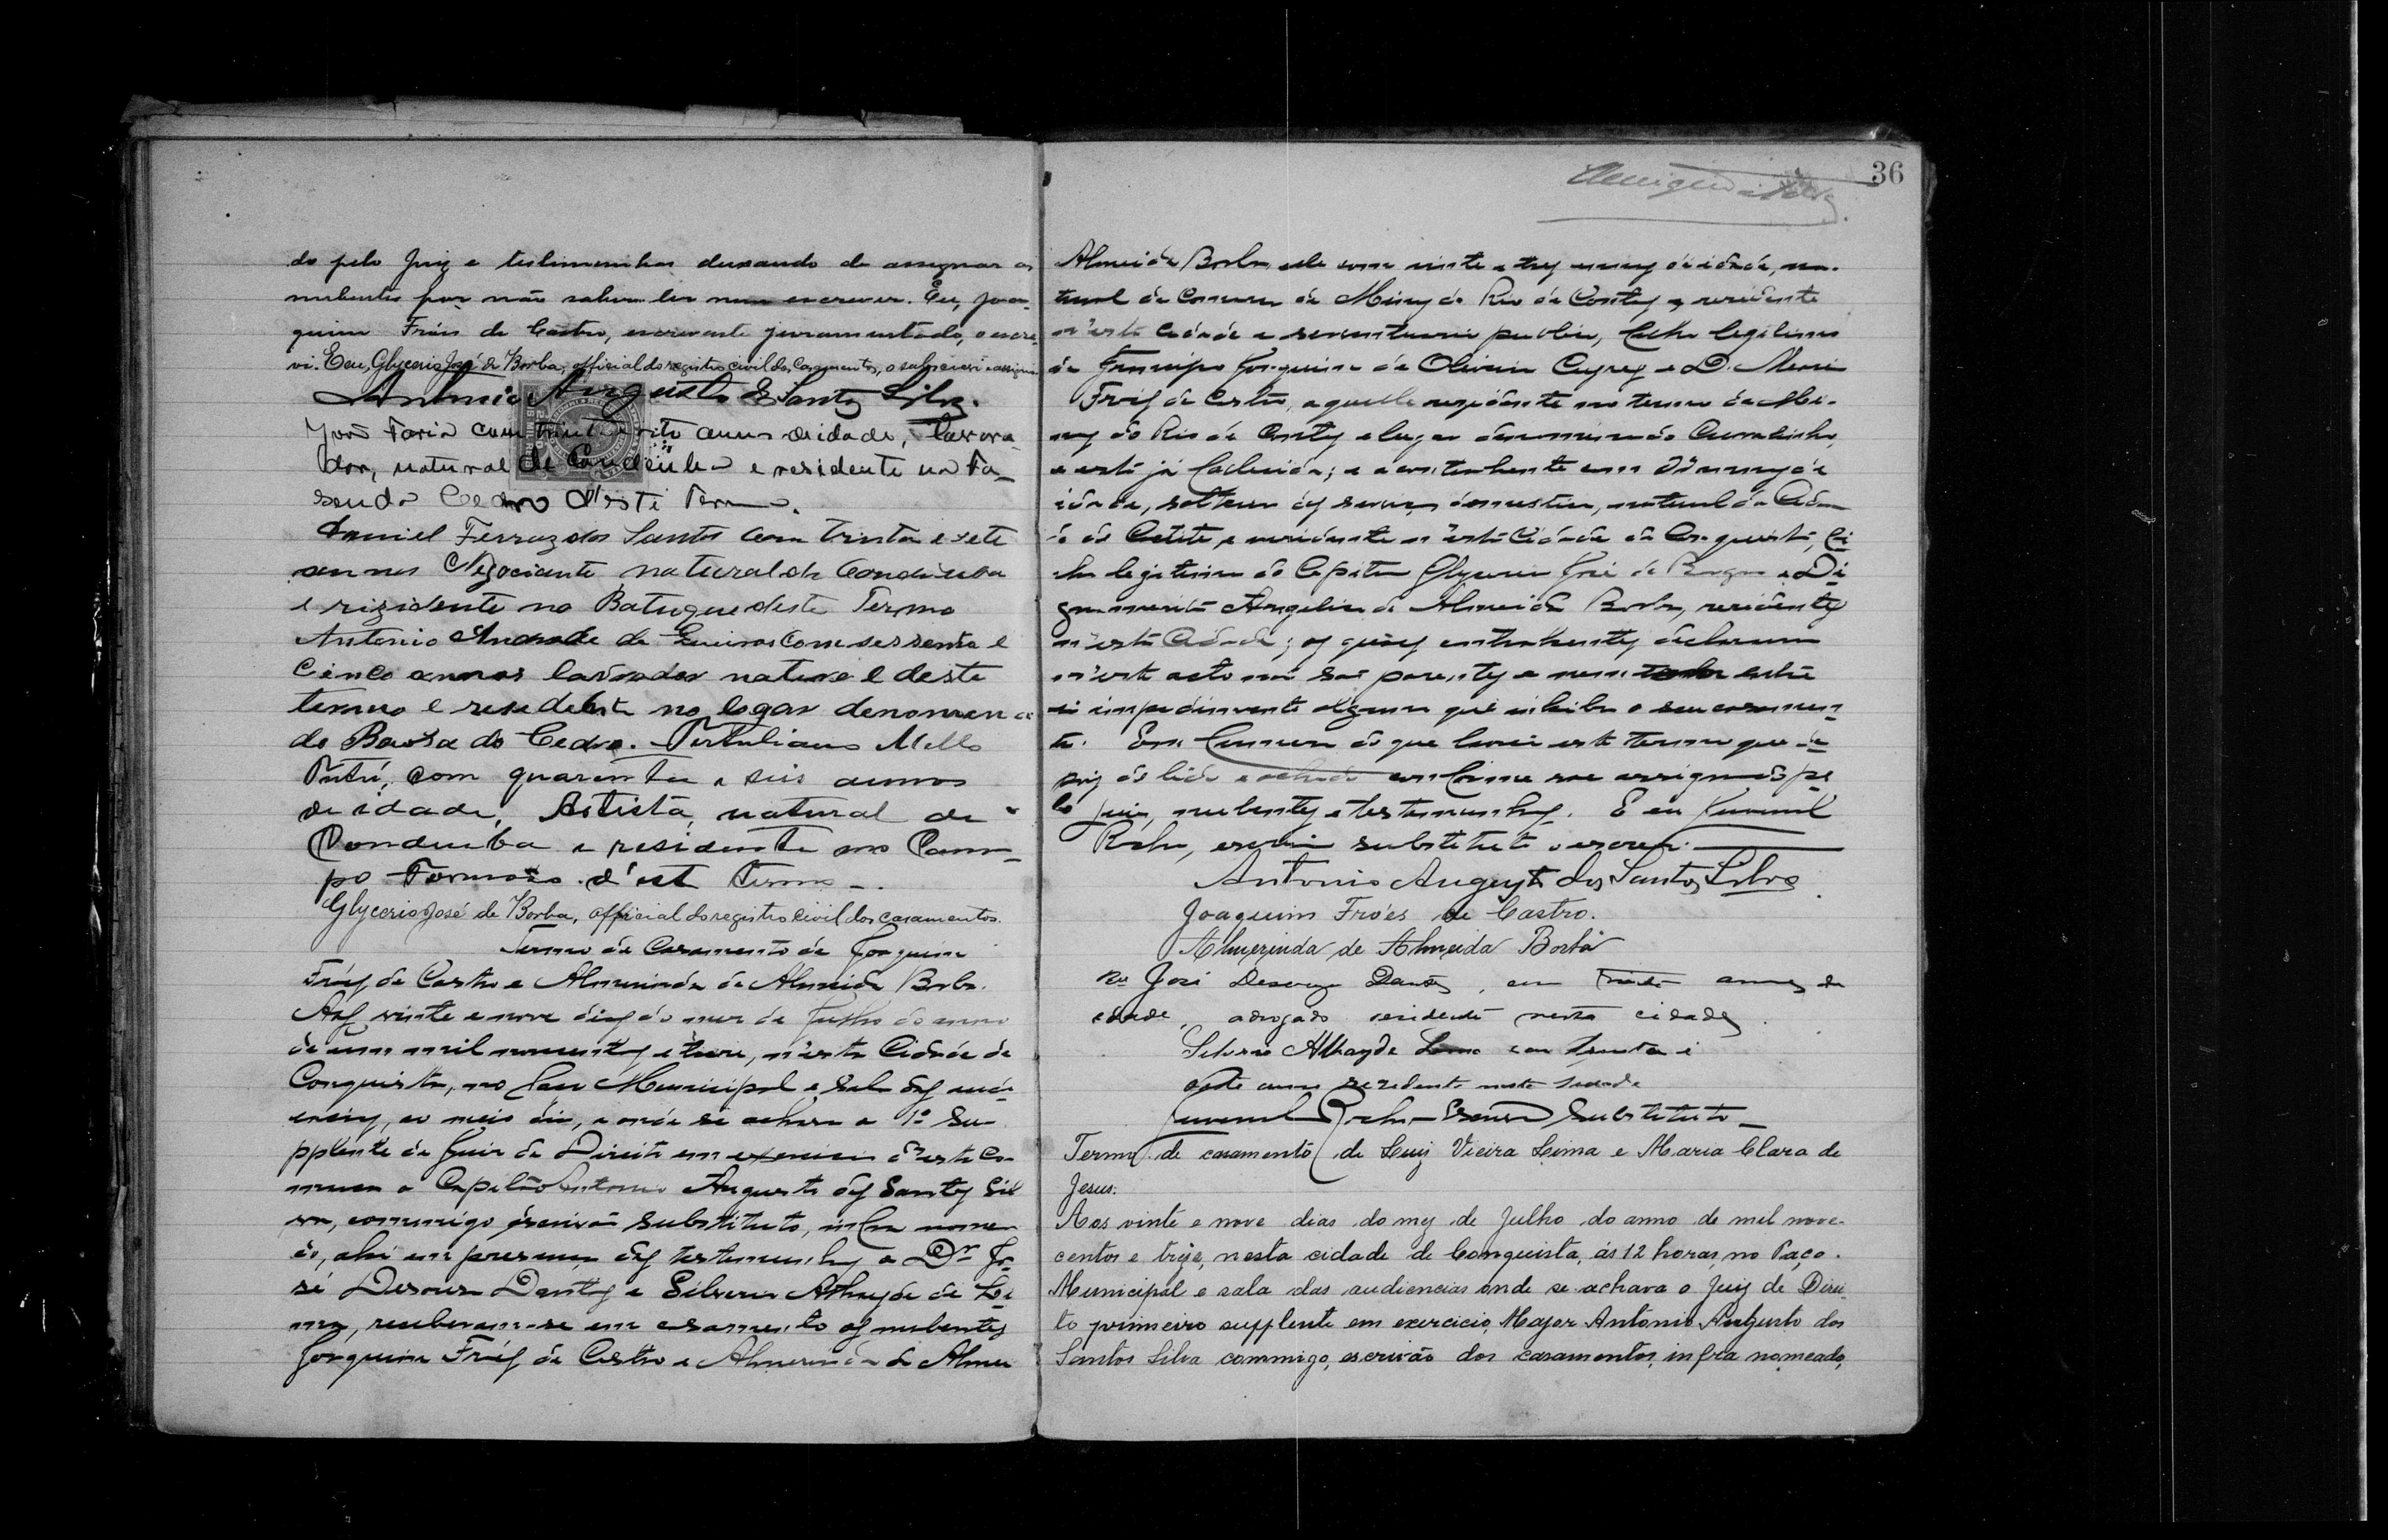 do pelo Juiz e testimunhas deixando de assignar os
nubentes por não saber ler nem escrever. Eu, Joa-
quim Fróis de Castro, escrevente juramentado, o escre-
vi. E eu, Glycerio José de Borba, official do registro civil dos casamentos, o subscrevi e assigno.
Antonio Augusto dos Santos Silva.
João Faria com trinta e oito annos de idade, lavra-
dor, natural de Condeuba e residente na Fa-
senda Cedro d'este Termo.
Daniel Ferraz dos Santos com trinta e sete
annos Negociante natural de Condeuba
e rizidente no Batuque deste Termo
Antonio Andrade de com sessenta e
cinco annos lavrador natural deste
termo e resedente no logar denomena
do Baixa do Cedro. Tertuliano Mello
com quarenta e seis annos
de idade, Artista, natural de
Condeuba e residente no Cam-
po Formoso d'est termo.
Glycerio José de Borba, official do registro civil dos casamentos.
Termo de Casamento de Joaquim
Fróes de Castro e Almerinda de Almeida Borba.
Aos vinte e nove dias do mez de Julho do anno
de um mil novecentos e treze, n'esta Cidade de
Conquista, no Paço Municipal e Sala das audi-
encias, ao meio dia, e onde se achava o 1º Su-
pplente do Juiz de Direito em exercicio d'esta Co-
marca o Capitão Antonio Augusto dos Santos Sil
va, commigo escrivão substituto, infra nomea
do, ahi em presença das testemunhas o Dr. Jo-
sé Desouza Dantas e Silverio Athayde de Li-
ma, receberam-se em casamento os nubentes
Joaquim Fróes de Castro e Almerinda de Almei
36
Almeida Borba, elle com vinte e tres annos de idade, na-
tural da Comarca de Minas do Rio de Contas, e residente
n'esta Cidade e serventuario publico, filho legitimo
de Joaquim de Oliveira e D. Maria
Fróes de Castro, aquelle residente no termo de Mi-
nas do Rio de Contas e lugar denominado Curralinho,
e esta já fallecida; e a contrahente com annos de
idade, solteira dos serviços domesticos, natural da Cida
de de Caetité, e residente n'esta Cidade da Conquista, fi
lha legitima do Capitão Glycerio José de Borba e D.
Angelina de Almeida Borba, residentes
n'esta Cidade; os quaes contrahentes declararam
n'este acto não são parentes e nem existe
impedimento algum que inhiba o seu casamen-
to. Em firmeza do que lavrei este termo que de-
pois de lido e achado conforme vae assignado pe-
lo Juiz, nubentes e testemunhas. E eu Juvenal
Rocha, escrivão substituto o escrevi.
Antonio Augusto dos Santos Silva
Joaquim Fróes de Castro.
Almerinda de Almeida Borba
Dr. José Desouza Dantas, com trinta annos de
edade, advogado residente nesta cidade.
Silverio Athayde Lima com trinta e
sete annos rezedente nesta sidade
Juvenal Rocha Escrivão Substituto
Termo de casamento de Luiz Vieira Lima e Maria Clara de
Jesus.
Aos vinte e nove dias do mez de Julho do anno de mil nove-
centos e treze, nesta cidade de Conquista, ás 12 horas, no Paço
Municipal e sala das audiencias onde se achava o Juiz de Direi-
to primeiro supplente em exercicio, Major Antonio Augusto dos
Santos Silva commigo, escrivão dos casamentos, infra nomeado,